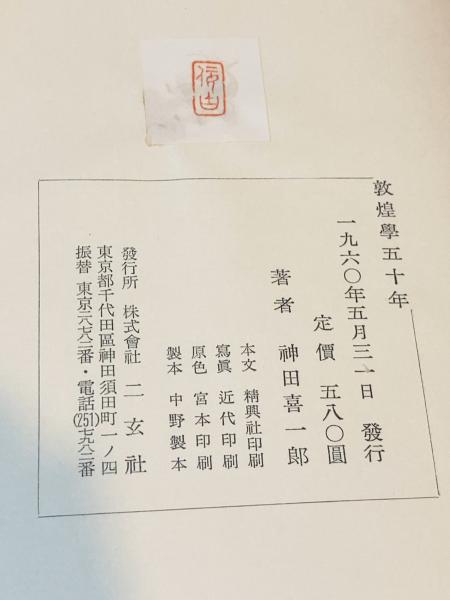 敦煌學五十年
一九六〇年五月三一日 發行
定價 五八〇圓
著者 神田喜一郎
本文 精興社印刷
寫眞 近代印刷
原色 宮本印刷
製本 中野製本
發行所 株式會社 二玄社
東京都千代田區神田須田町一ノ四
振替 東京二六七八二番・電話(251)七九八二番